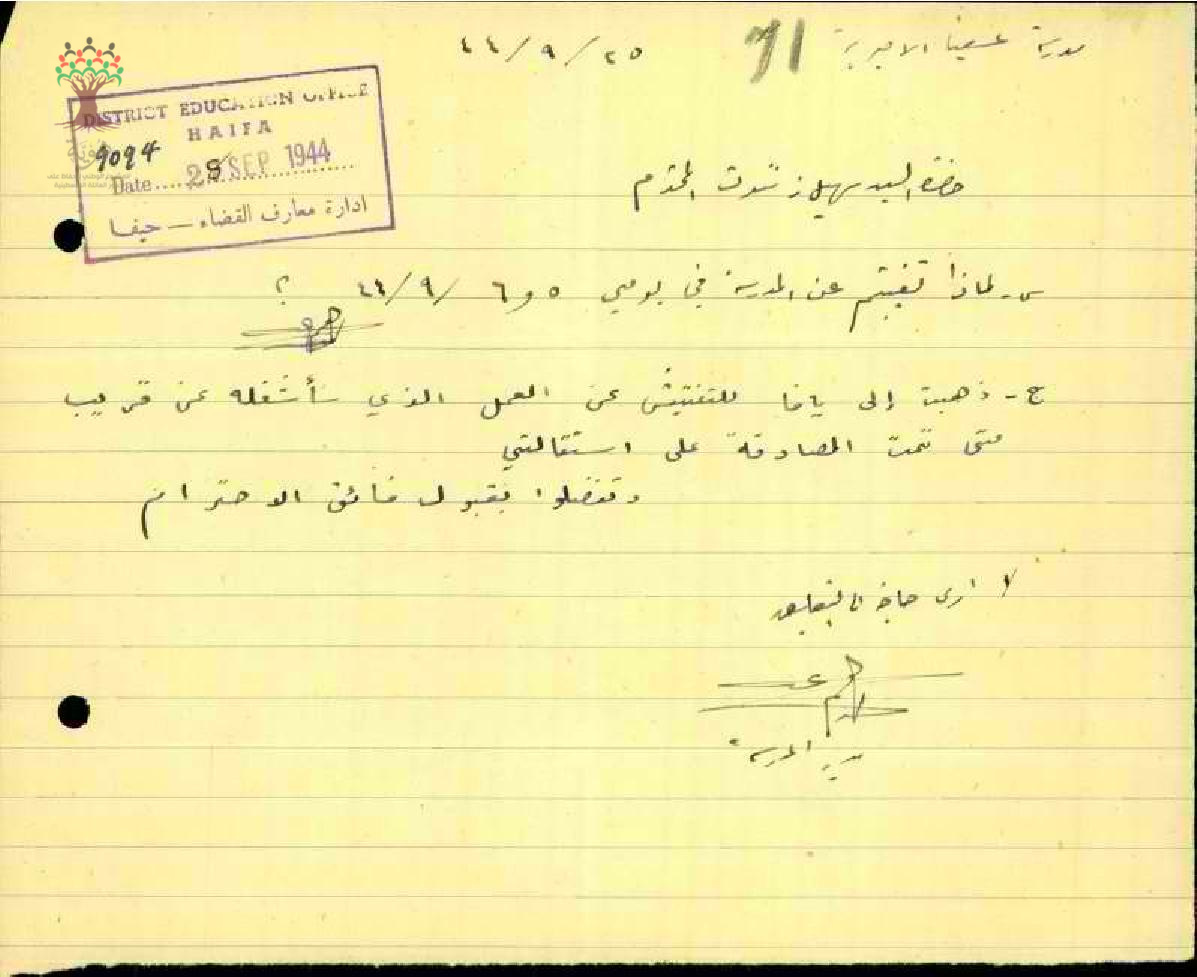 مدرسة عسفيا الاميرية
71
٢٥/٩/٤٤
DISTRICT EDUCATION OFFICE
HAIFA
9094
Date 28 SEP 1944
ادارة معارف القضاء — حيفا
حضرة السيد سهيل شوت المحترم
س- لماذا تغيبتم عن المدرسة في يومي ٥ و ٦ /٩/ ٤٤ ؟
ج- ذهبت إلى يافا للتفتيش عن العمل الذي سأشغله عن قريب
متى تمت المصادقة على استقالتي
وتفضلوا بقبول فائق الاحترام
لا ارى حاجة للتعليق
مدير المدرسة